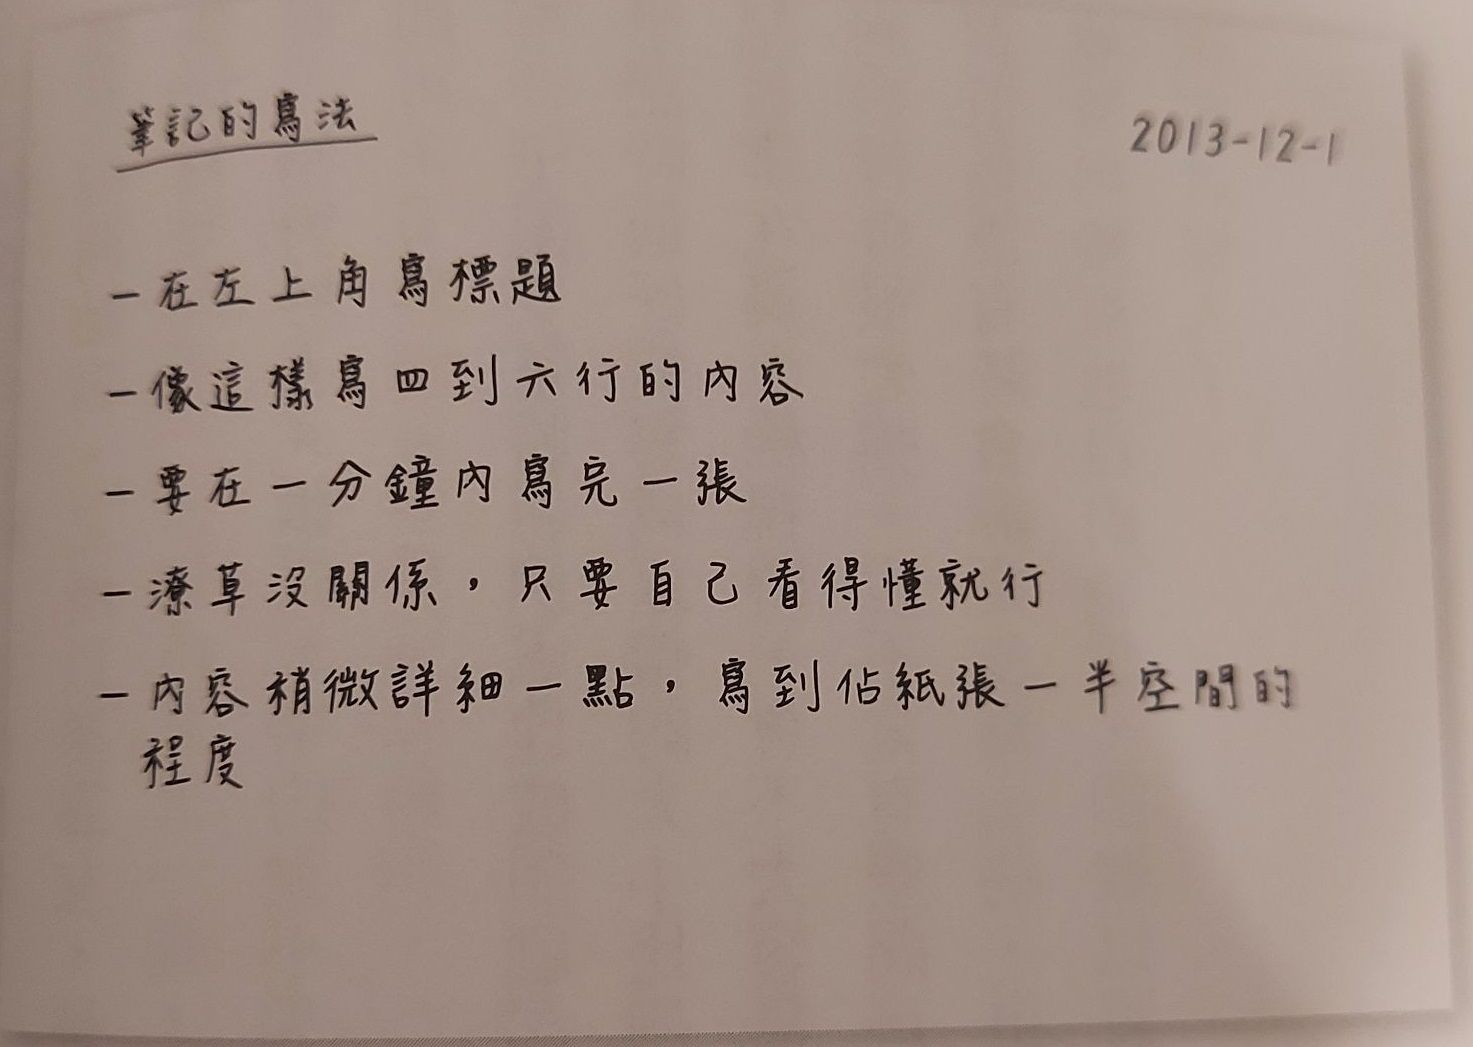 筆記的寫法
2013-12-1
－在左上角寫標題
－像這樣寫四到六行的內容
－要在一分鐘內寫完一張
－潦草沒關係，只要自己看得懂就行
－內容稍微詳細一點，寫到佔紙張一半空間的
程度